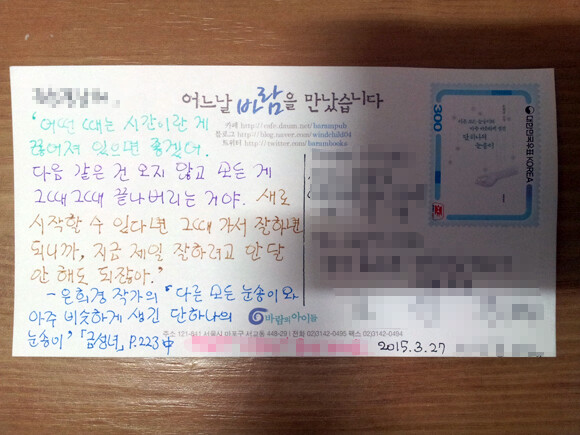 어느날 바람을 만났습니다
카페 http://cafe.daum.net/barampub
블로그 http://blog.naver.com/windchild04
트위터 http://twitter.com/barambooks
"어떤 때는 시간이란 게
끊어져 있으면 좋겠어.
다음 같은 건 오지 않고 모든 게
그때그때 끝나버리는 거야. 새로
시작할 수 있다면 그때 가서 잘하면
되니까, 지금 제일 잘하려고 안달
안 해도 되잖아."
- 은희경 작가의 "다른 모든 눈송이와
아주 비슷하게 생긴 단 하나의
눈송이" 「금성녀」, P.223 中
바람의아이들
주소 121-841 서울시 마포구 서교동 448-29 | 전화 02)3142-0495 팩스 02)3142-0494
2015.3.27
300
대한민국우표 KOREA
단 하나의
눈송이